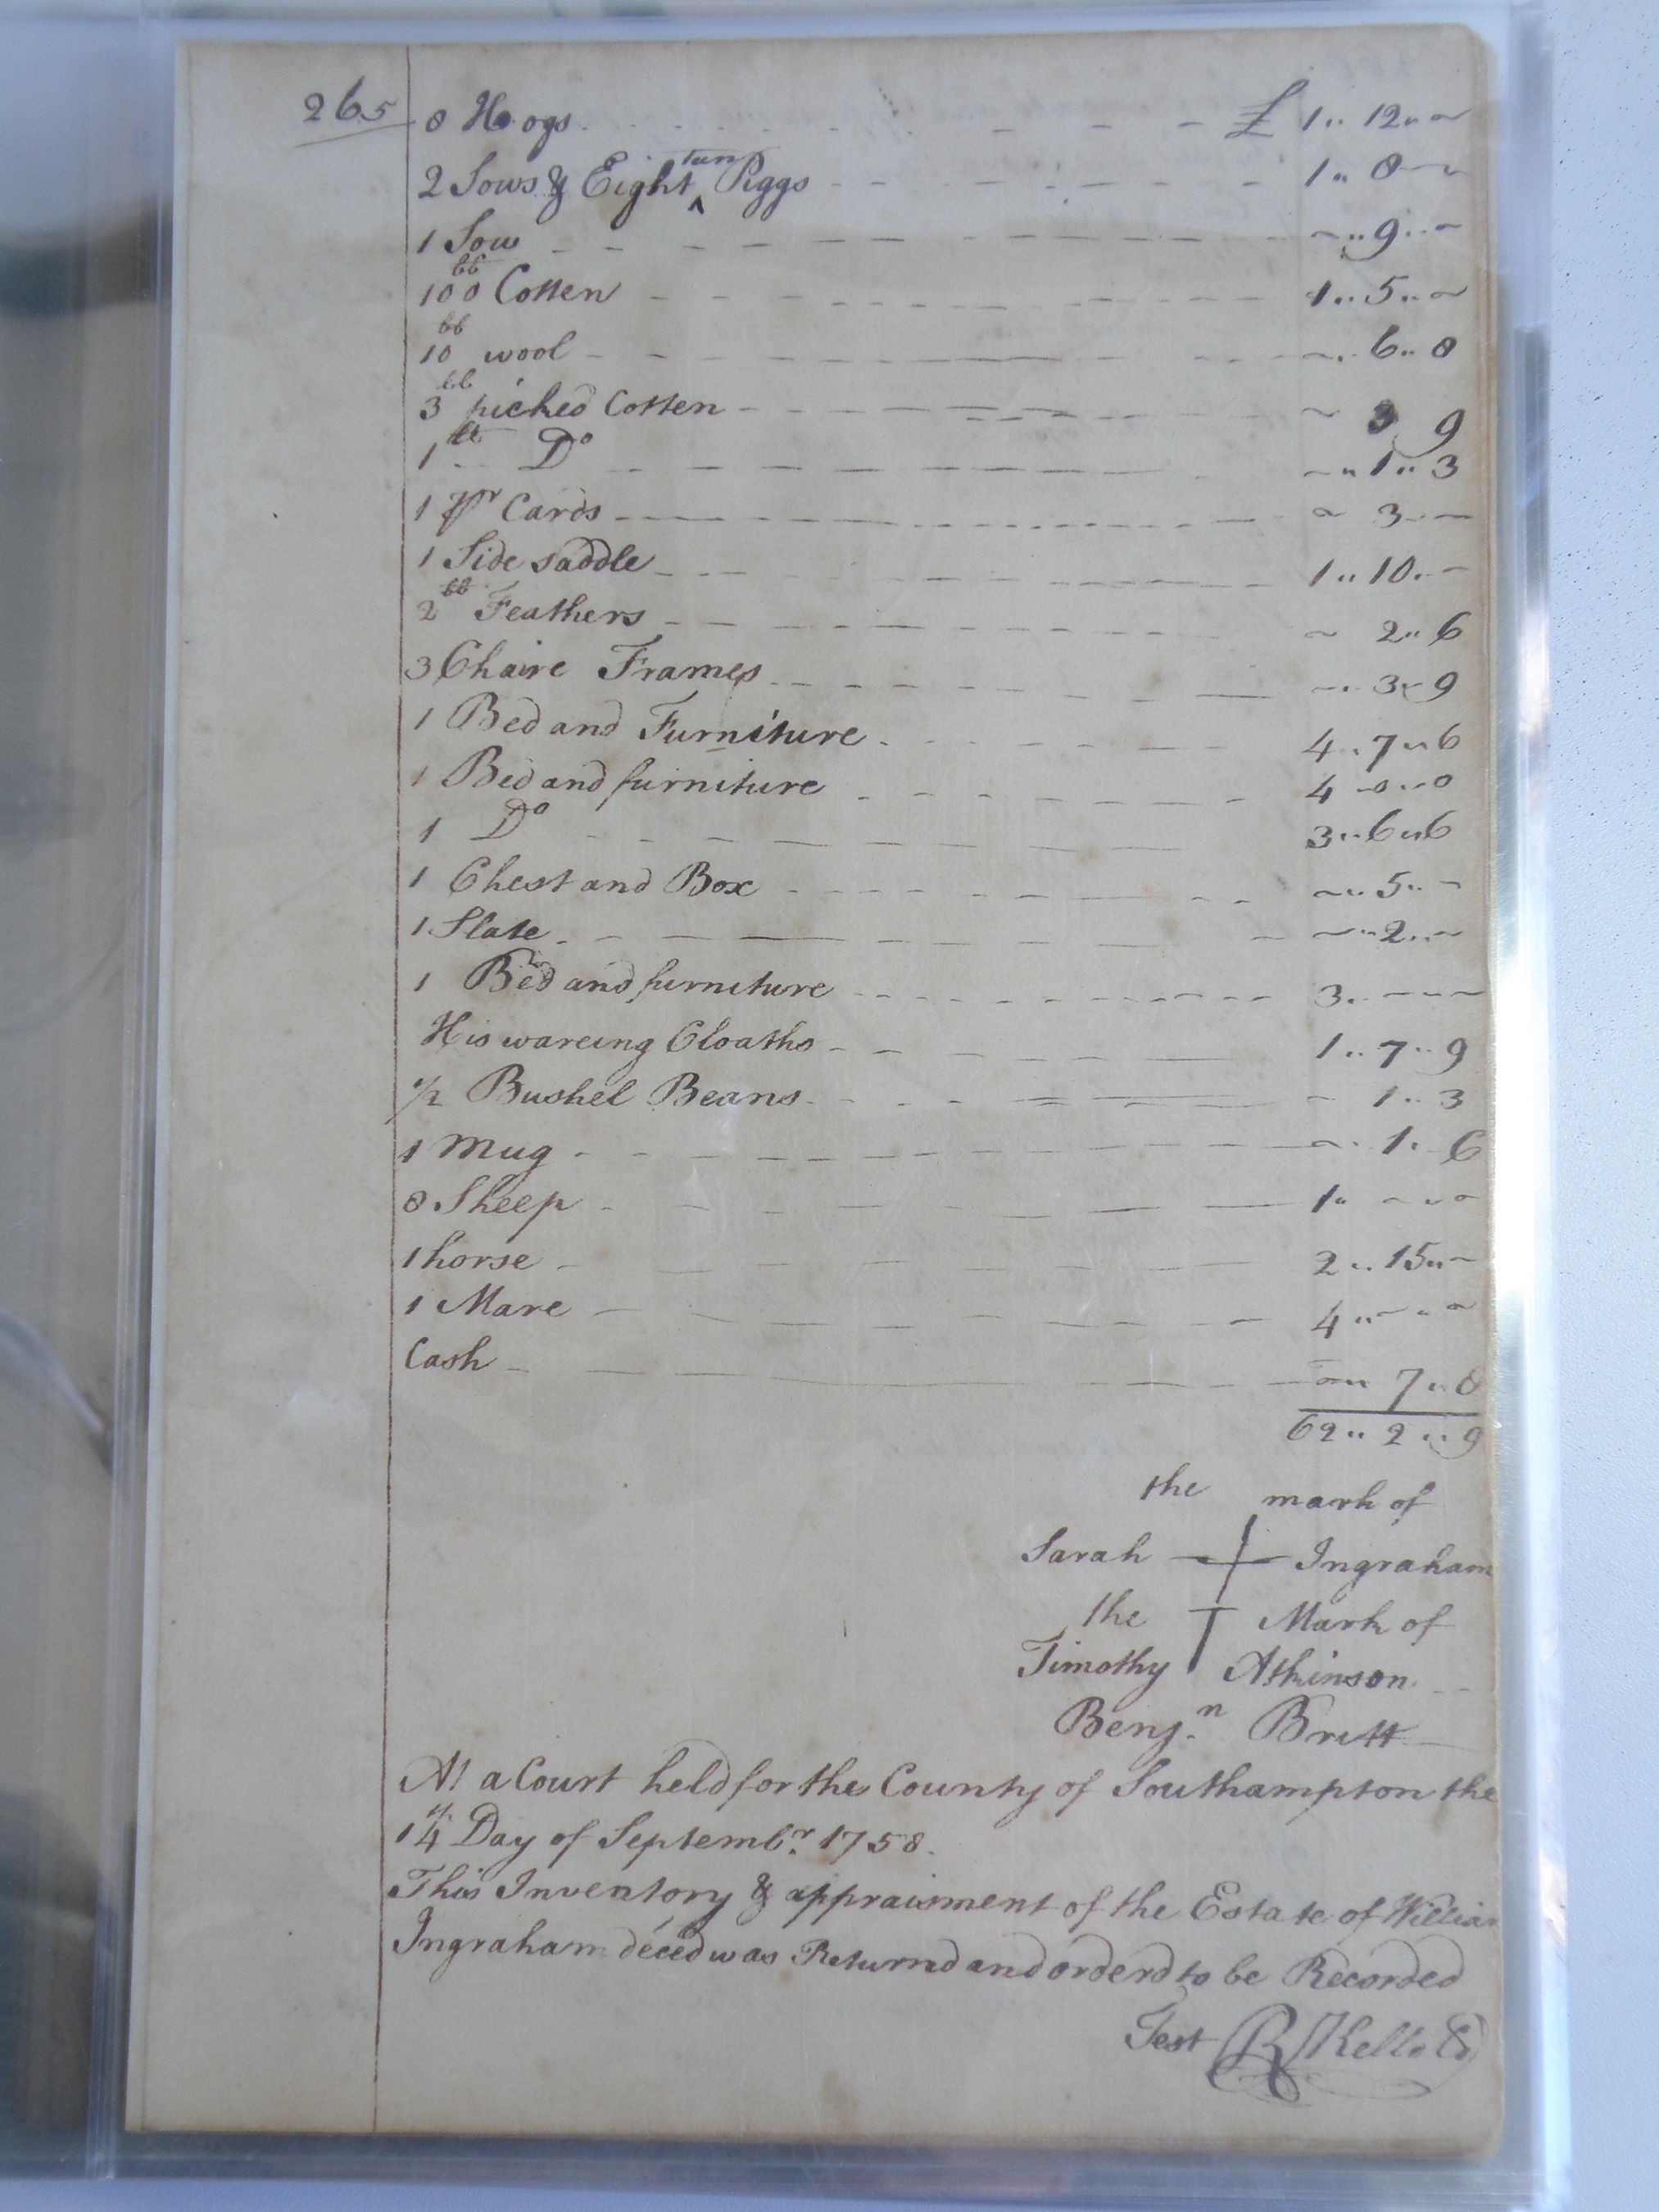 265
8 Hoogs - - - £ 1.. 12.. ~
teen
2 Sows & Eight ^ Piggs - - - 1.. 8 ~ ~
1 Sow - - - ~.. 9.. ~
100 lb Cotten - - - 1.. 5.. ~
10 lb wool - - - ~.. 6.. 8
3 lb picked Cotten - - - ~ 3 9
1 lb Do - - - ~.. 1.. 3
1 pr Cards - - - ~ 3 - -
1 Side saddle - - - 1.. 10.. -
2 lb Feathers - - - ~ 2.. 6
3 Chaire Frames - - - ~.. 3.. 9
1 Bed and Furniture - - - 4.. 7.. 6
1 Bed and furniture - - - 4 - 0.. - 0
1 Do - - - 3.. 6.. 6
1 Chest and Box - - - ~.. 5.. -
1 Slate - - - ~.. 2.. ~
1 Bed and furniture - - - 3.. - - -
His wareing Cloaths - - - 1.. 7.. 9
1/2 Bushel Beans - - - 1.. 3
1 Mug - - - ~. 1.. 6
8 Sheep - - - 1.. ~ ~ ~
1 horse - - - 2.. 15.. ~
1 Mare - - - 4.. ~ ~ ~
Cash - - - ~.. 7.. 8
62.. 2.. 9
the mark of
Sarah + Ingraham
the T Mark of
Timothy Atkinson
Benj.n Britt
At a Court held for the County of Southampton the
14th Day of Septemb.r 1758.
This Inventory & appraisment of the Estate of William
Ingraham deced was Returnd and orderd to be Recorded
Test R Kello Ck